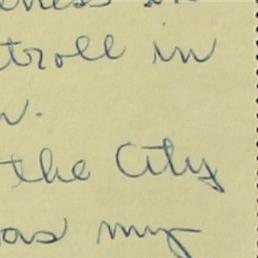 troll in
the City
as my